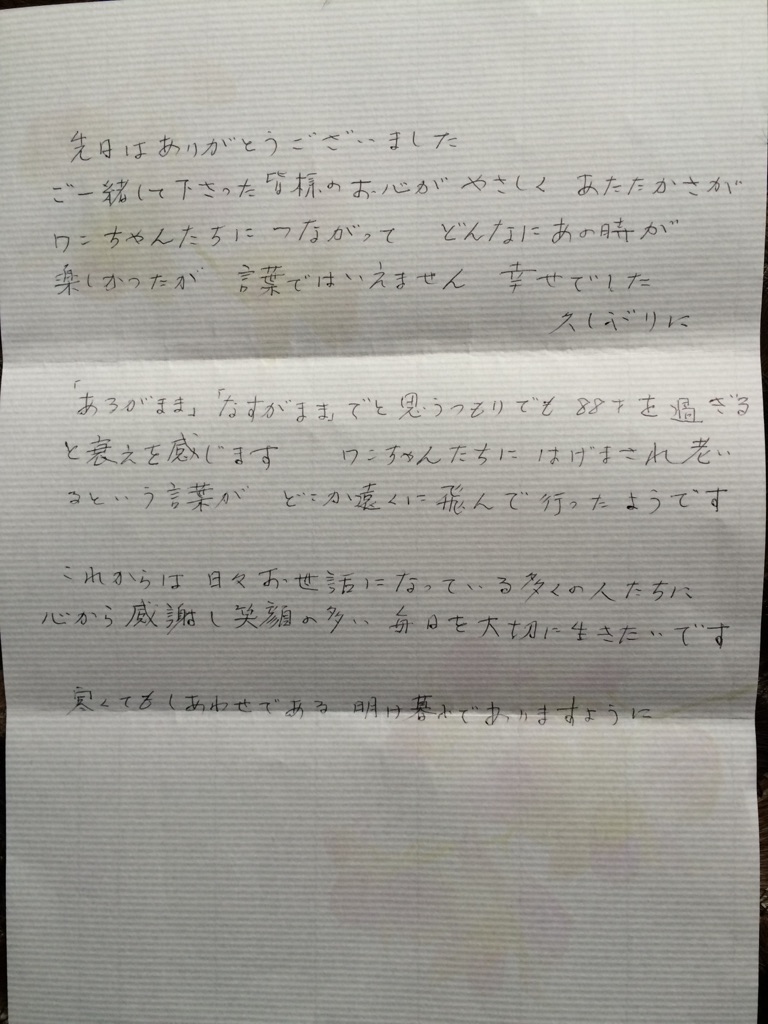 先日はありがとうございました
ご一緒して下さった皆様のお心が やさしく あたたかさが
ワンちゃんたちに つながって どんなにあの時が
楽しかったが 言葉ではいえません 幸せでした
久しぶりに
「あるがまま」「なすがまま」でと思うつもりでも 88才を過ぎる
と衰えを感じます ワンちゃんたちに はげまされ 老い
るという言葉が どこか遠くに飛んで行ったようです
これからは 日々お世話になっている多くの人たちに
心から感謝し笑顔の多い 毎日を大切に生きたいです
寒くてもしあわせである 明け暮れでありますように